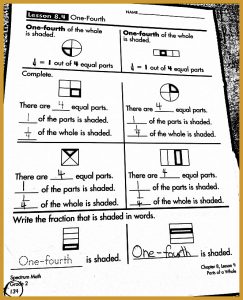 Lesson 8.4 One-Fourth
One-fourth of the whole is shaded.
One-fourth of the whole is shaded.
1/4 = 1 out of 4 equal parts
1/4 = 1 out of 4 equal parts
Complete.
There are 4 equal parts.
1 of the parts is shaded.
1/4 of the whole is shaded.
There are 4 equal parts.
1 of the parts is shaded.
1/4 of the whole is shaded.
There are 4 equal parts.
1 of the parts is shaded.
1/4 of the whole is shaded.
There are 4 equal parts.
1 of the parts is shaded.
1/4 of the whole is shaded.
Write the fraction that is shaded in words.
One-fourth is shaded.
One-fourth is shaded.
Spectrum Math
Grade 2
139
Chapter 8, Lesson 4
Parts of a Whole